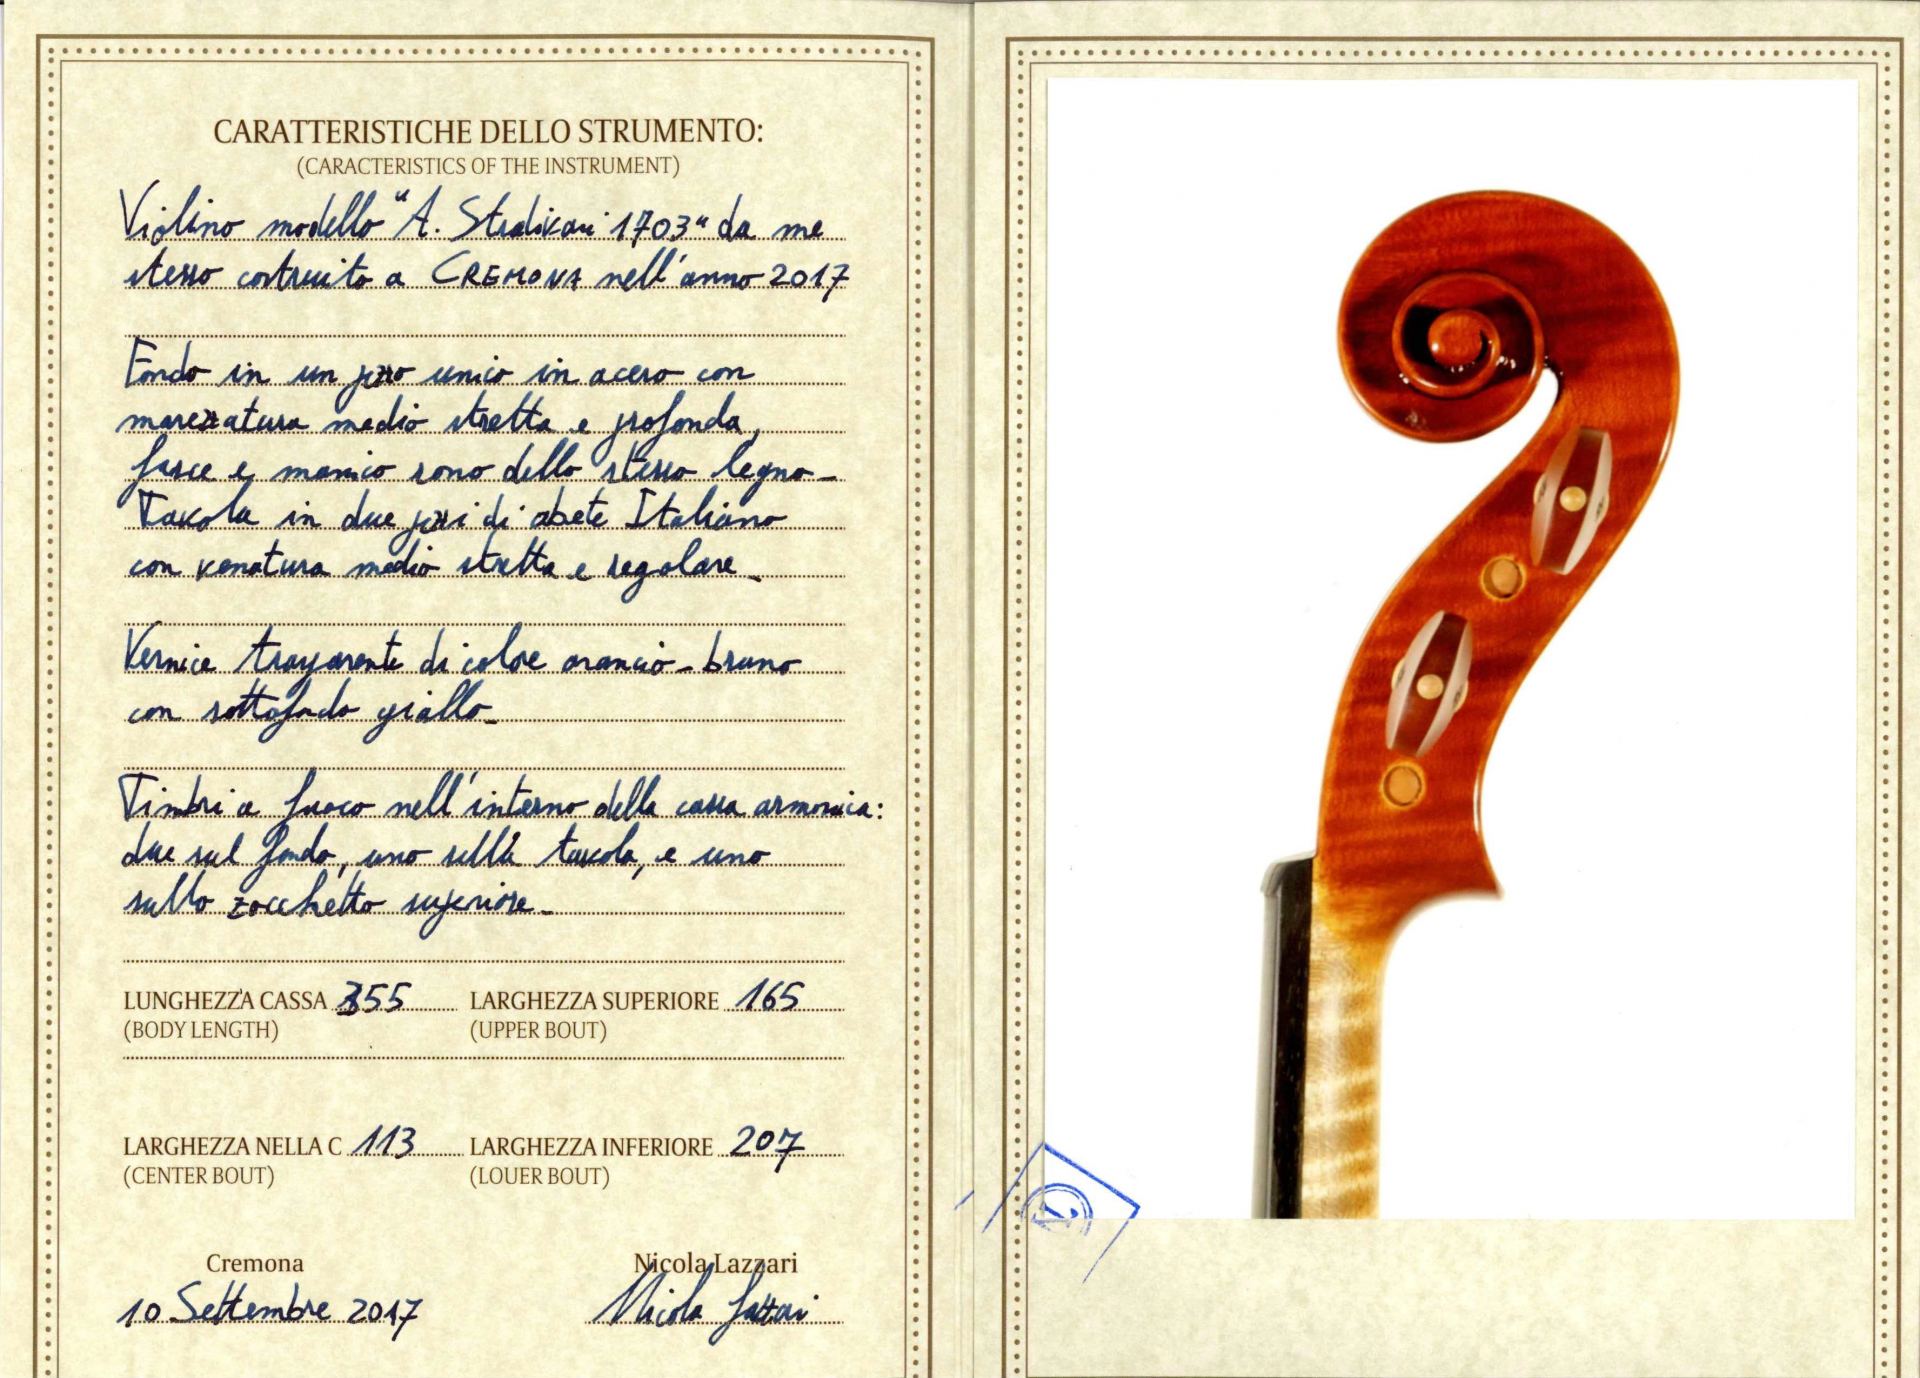 CARATTERISTICHE DELLO STRUMENTO:
(CARACTERISTICS OF THE INSTRUMENT)
Violino modello "A. Stradivari 1703" da me
stesso costruito a CREMONA nell'anno 2017
Fondo in un pezzo unico in acero con
marezzatura medio stretta e profonda,
fasce e manico sono dello stesso legno_
Tavola in due pezzi di abete Italiano
con venatura medio stretta e regolare_
Vernice trasparente di colore arancio-bruno
con sottofondo giallo_
Timbri a fuoco nell'interno della cassa armonica:
due sul fondo, uno sulla tavola, e uno
sullo zocchetto superiore_
LUNGHEZZA CASSA 355 LARGHEZZA SUPERIORE 165
(BODY LENGTH) (UPPER BOUT)
LARGHEZZA NELLA C 113 LARGHEZZA INFERIORE 207
(CENTER BOUT) (LOUER BOUT)
Cremona Nicola Lazzari
10 Settembre 2017 Nicola Lazzari